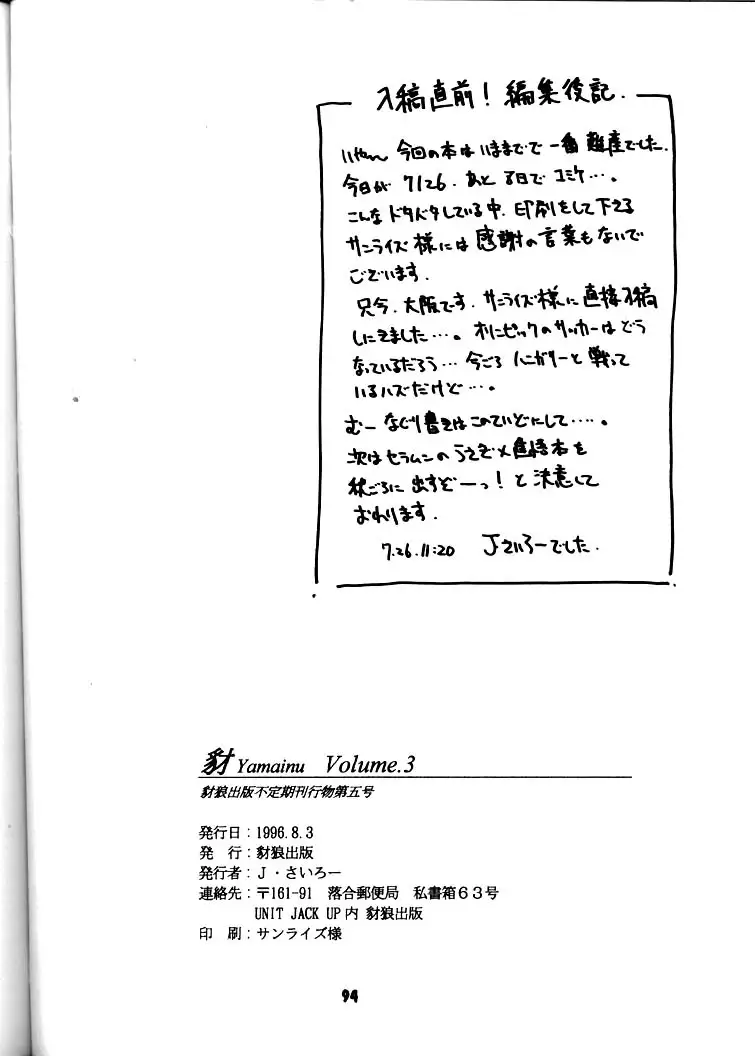 入稿直前！編集後記.
いやーん 今回の本はいままでで一番難産でした.
今日が 7/26. あと 8日で コミケ….
こんな ドタバタしている中. 印刷をして下さる
サンライズ 様には 感謝の言葉もないで
ございます.
只今. 大阪です. サンライズ様に直接入稿
しにきました…。オリンピックのサッカーは どう
なっているだろう… 今ごろ ハンガリーと 戦って
いるハズだけど…。
むー なぐり書きはこのていどにして…..。
次は セラムンの うさぎ×直本を
秋ごろに 出すぞーっ！と 決意して
おわります.
7.26.11:20 Jさいろーでした.
豺 Yamainu Volume.3
豺狼出版不定期刊行物第五号
発行日：1996.8.3
発　行：豺狼出版
発行者：Ｊ・さいろー
連絡先：〒161-91　落合郵便局　私書箱６３号
UNIT JACK UP内 豺狼出版
印　刷：サンライズ様
94